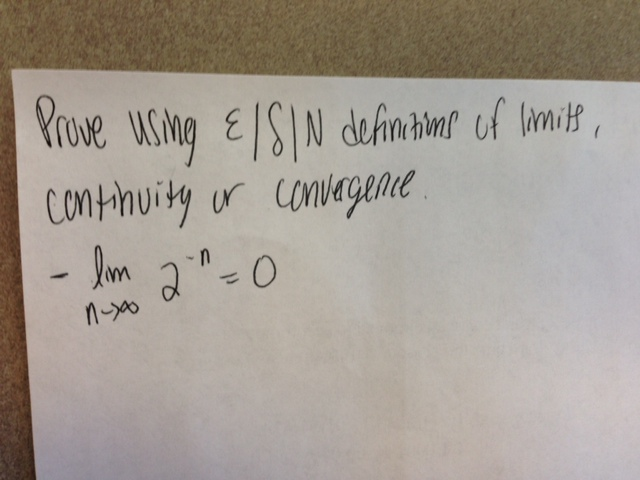 Prove using ε/δ/N definitions of limits,
continuity or convergence.
- lim 2⁻ⁿ = 0
n→∞